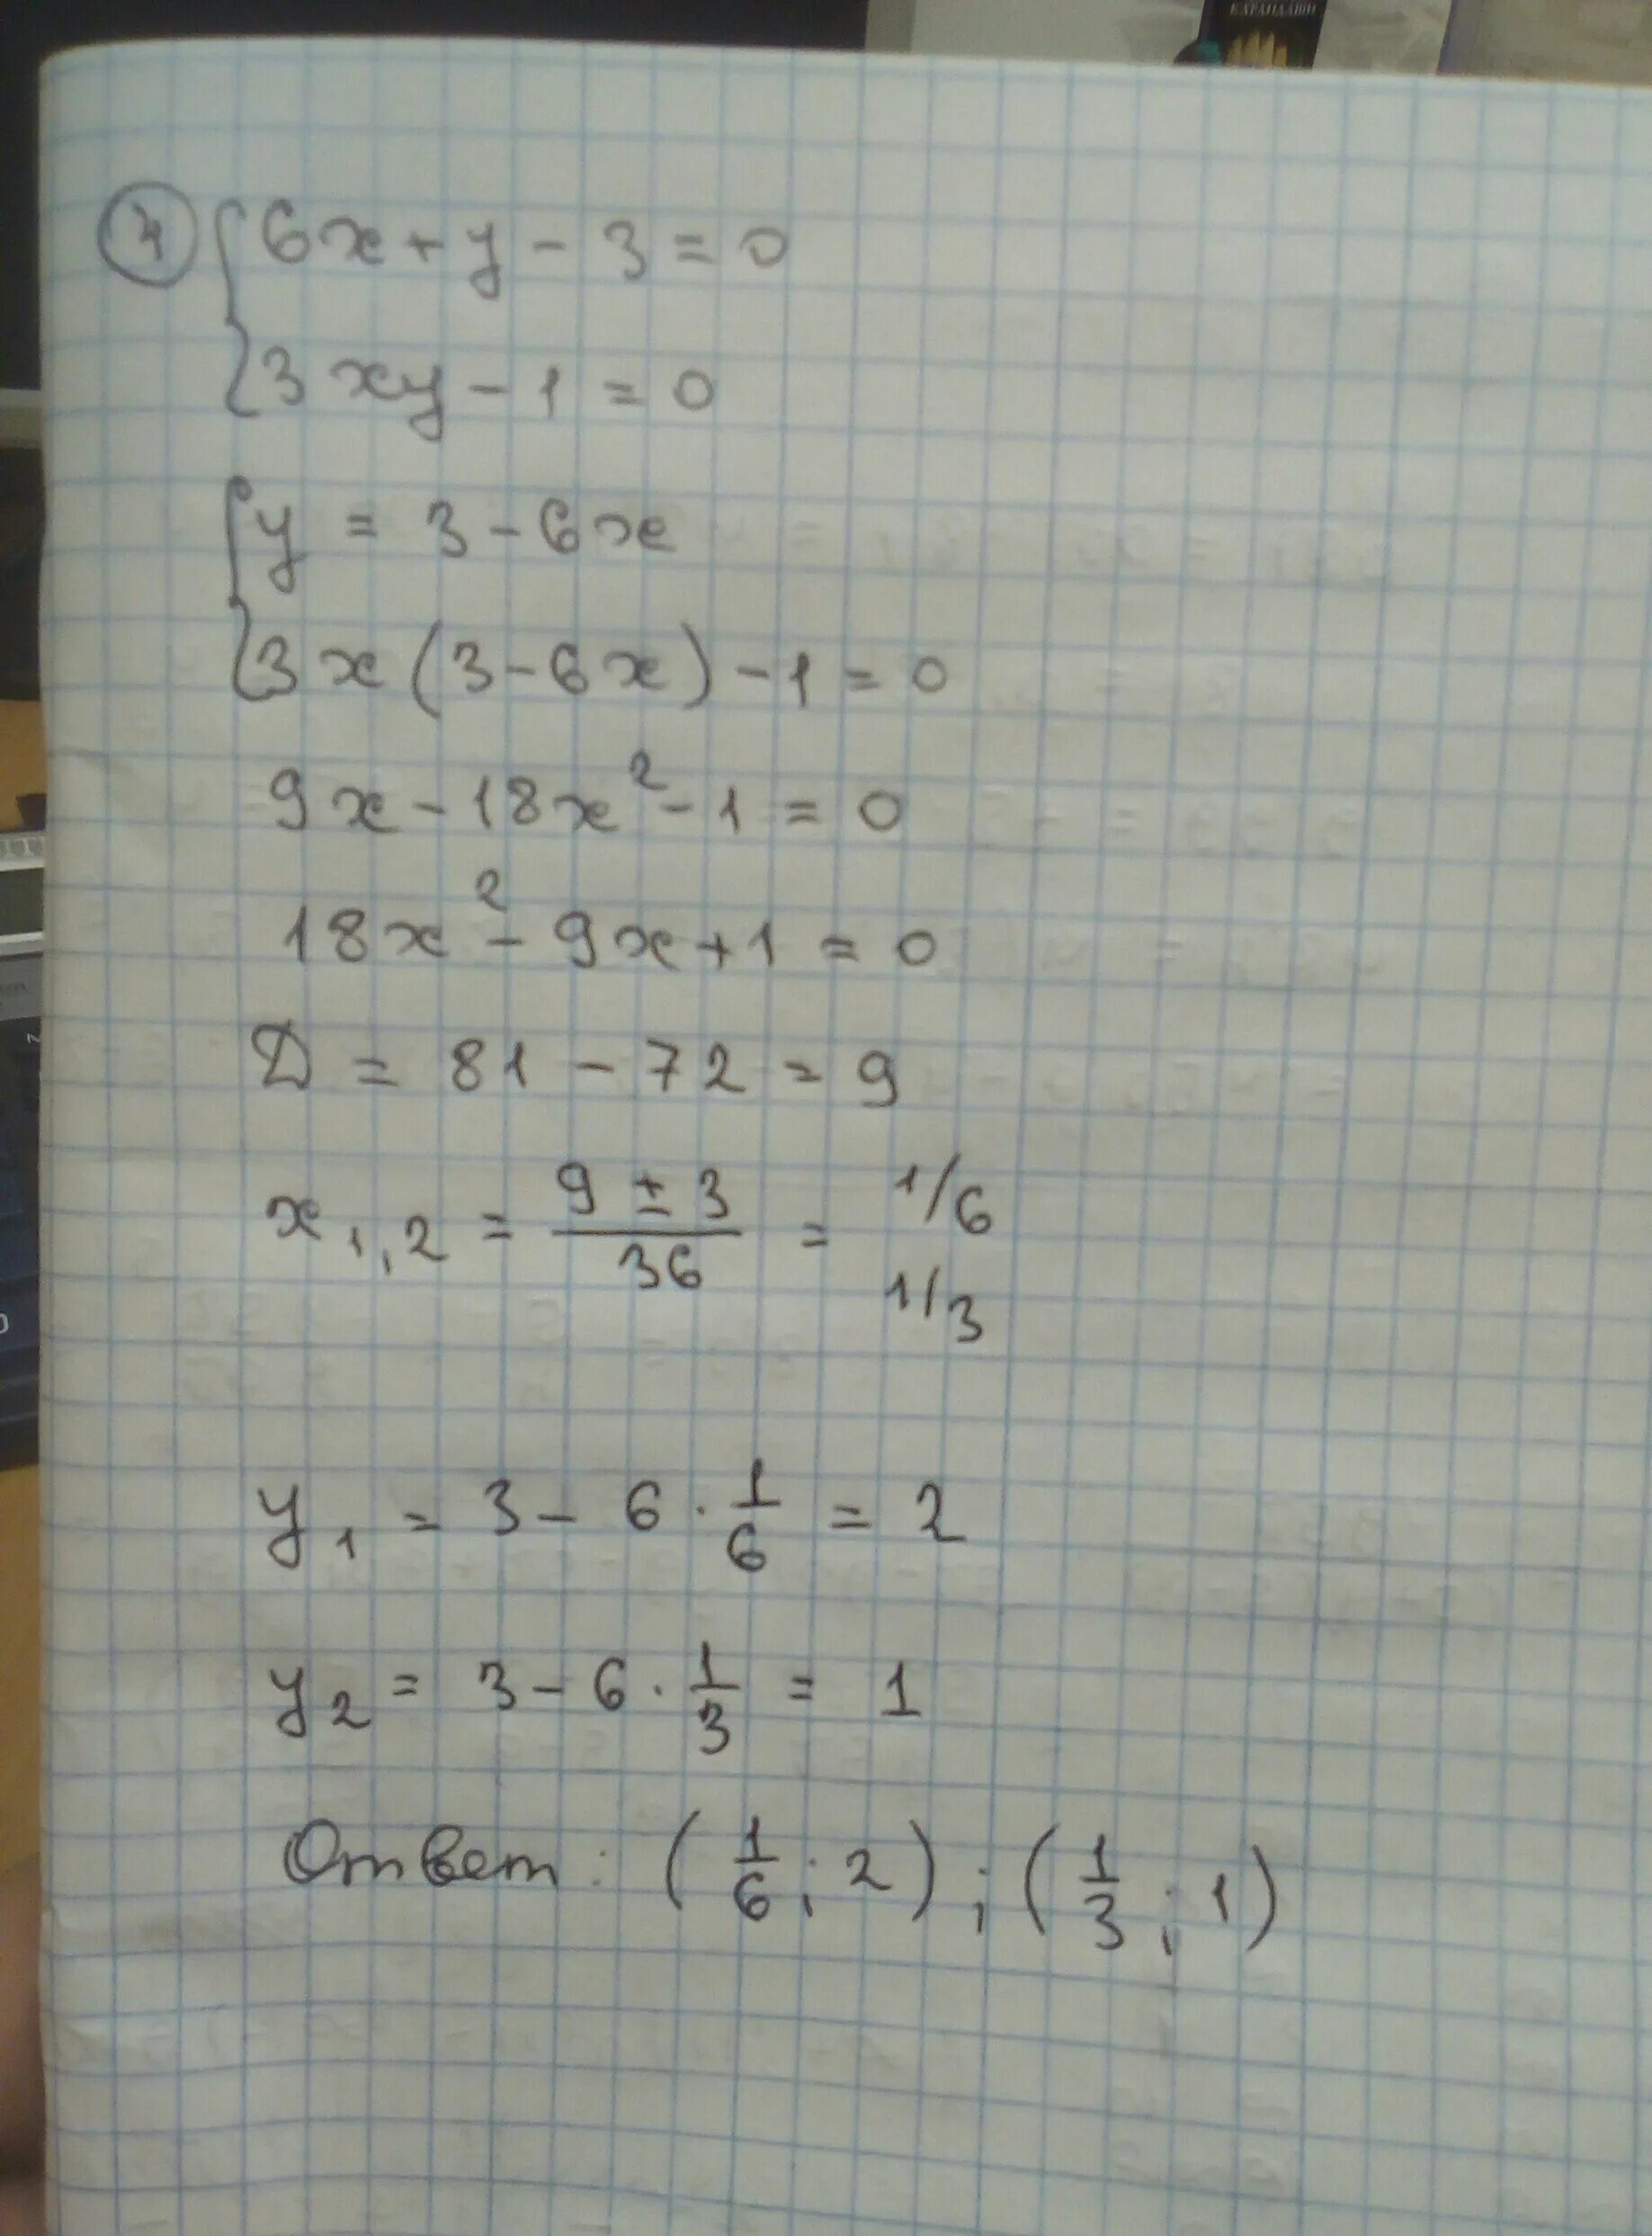 КАРАНДАШИ
{ 6x + y - 3 = 0
{ 3xy - 1 = 0
{ y = 3 - 6x
{ 3x(3 - 6x) - 1 = 0
9x - 18x² - 1 = 0
18x² - 9x + 1 = 0
D = 81 - 72 = 9
x₁,₂ = (9 ± 3)/36 = 1/6
1/3
y₁ = 3 - 6 · 1/6 = 2
y₂ = 3 - 6 · 1/3 = 1
Ответ: (1/6; 2); (1/3; 1)